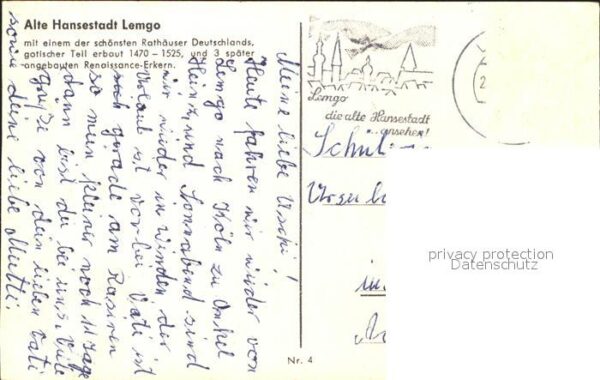 Alte Hansestadt Lemgo
mit einem der schönsten Rathäuser Deutschlands,
gotischer Teil erbaut 1470 – 1525, und 3 später
angebauten Renaissance-Erkern.
Meine liebe Uschi!
Heute fahren wir wieder von
Lemgo nach Köln zu Onkel
Heinz, und Sonnabend sind
wir wieder in der
Urlaub ist vorbei. Vati ist
noch gerade am Rasieren
so mein kleiner noch 11 Tage
dann bist du bei uns. Viele
Grüße von dein lieben Vati
sowie deine liebe Mutti.
Lemgo
die alte Hansestadt
ansehen!
privacy protection
Datenschutz
Nr. 4